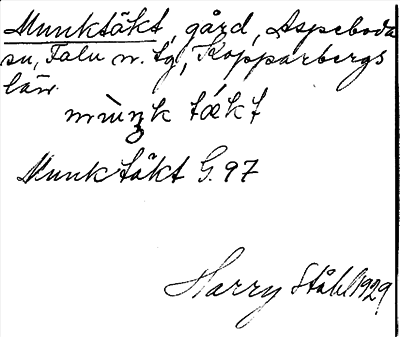 Munktäkt, gård, Aspeboda
sn, Falu n. tgl, Kopparbergs
län.
mùŋk tækt
Munktäkt G. 97
Harry Ståhl 1929